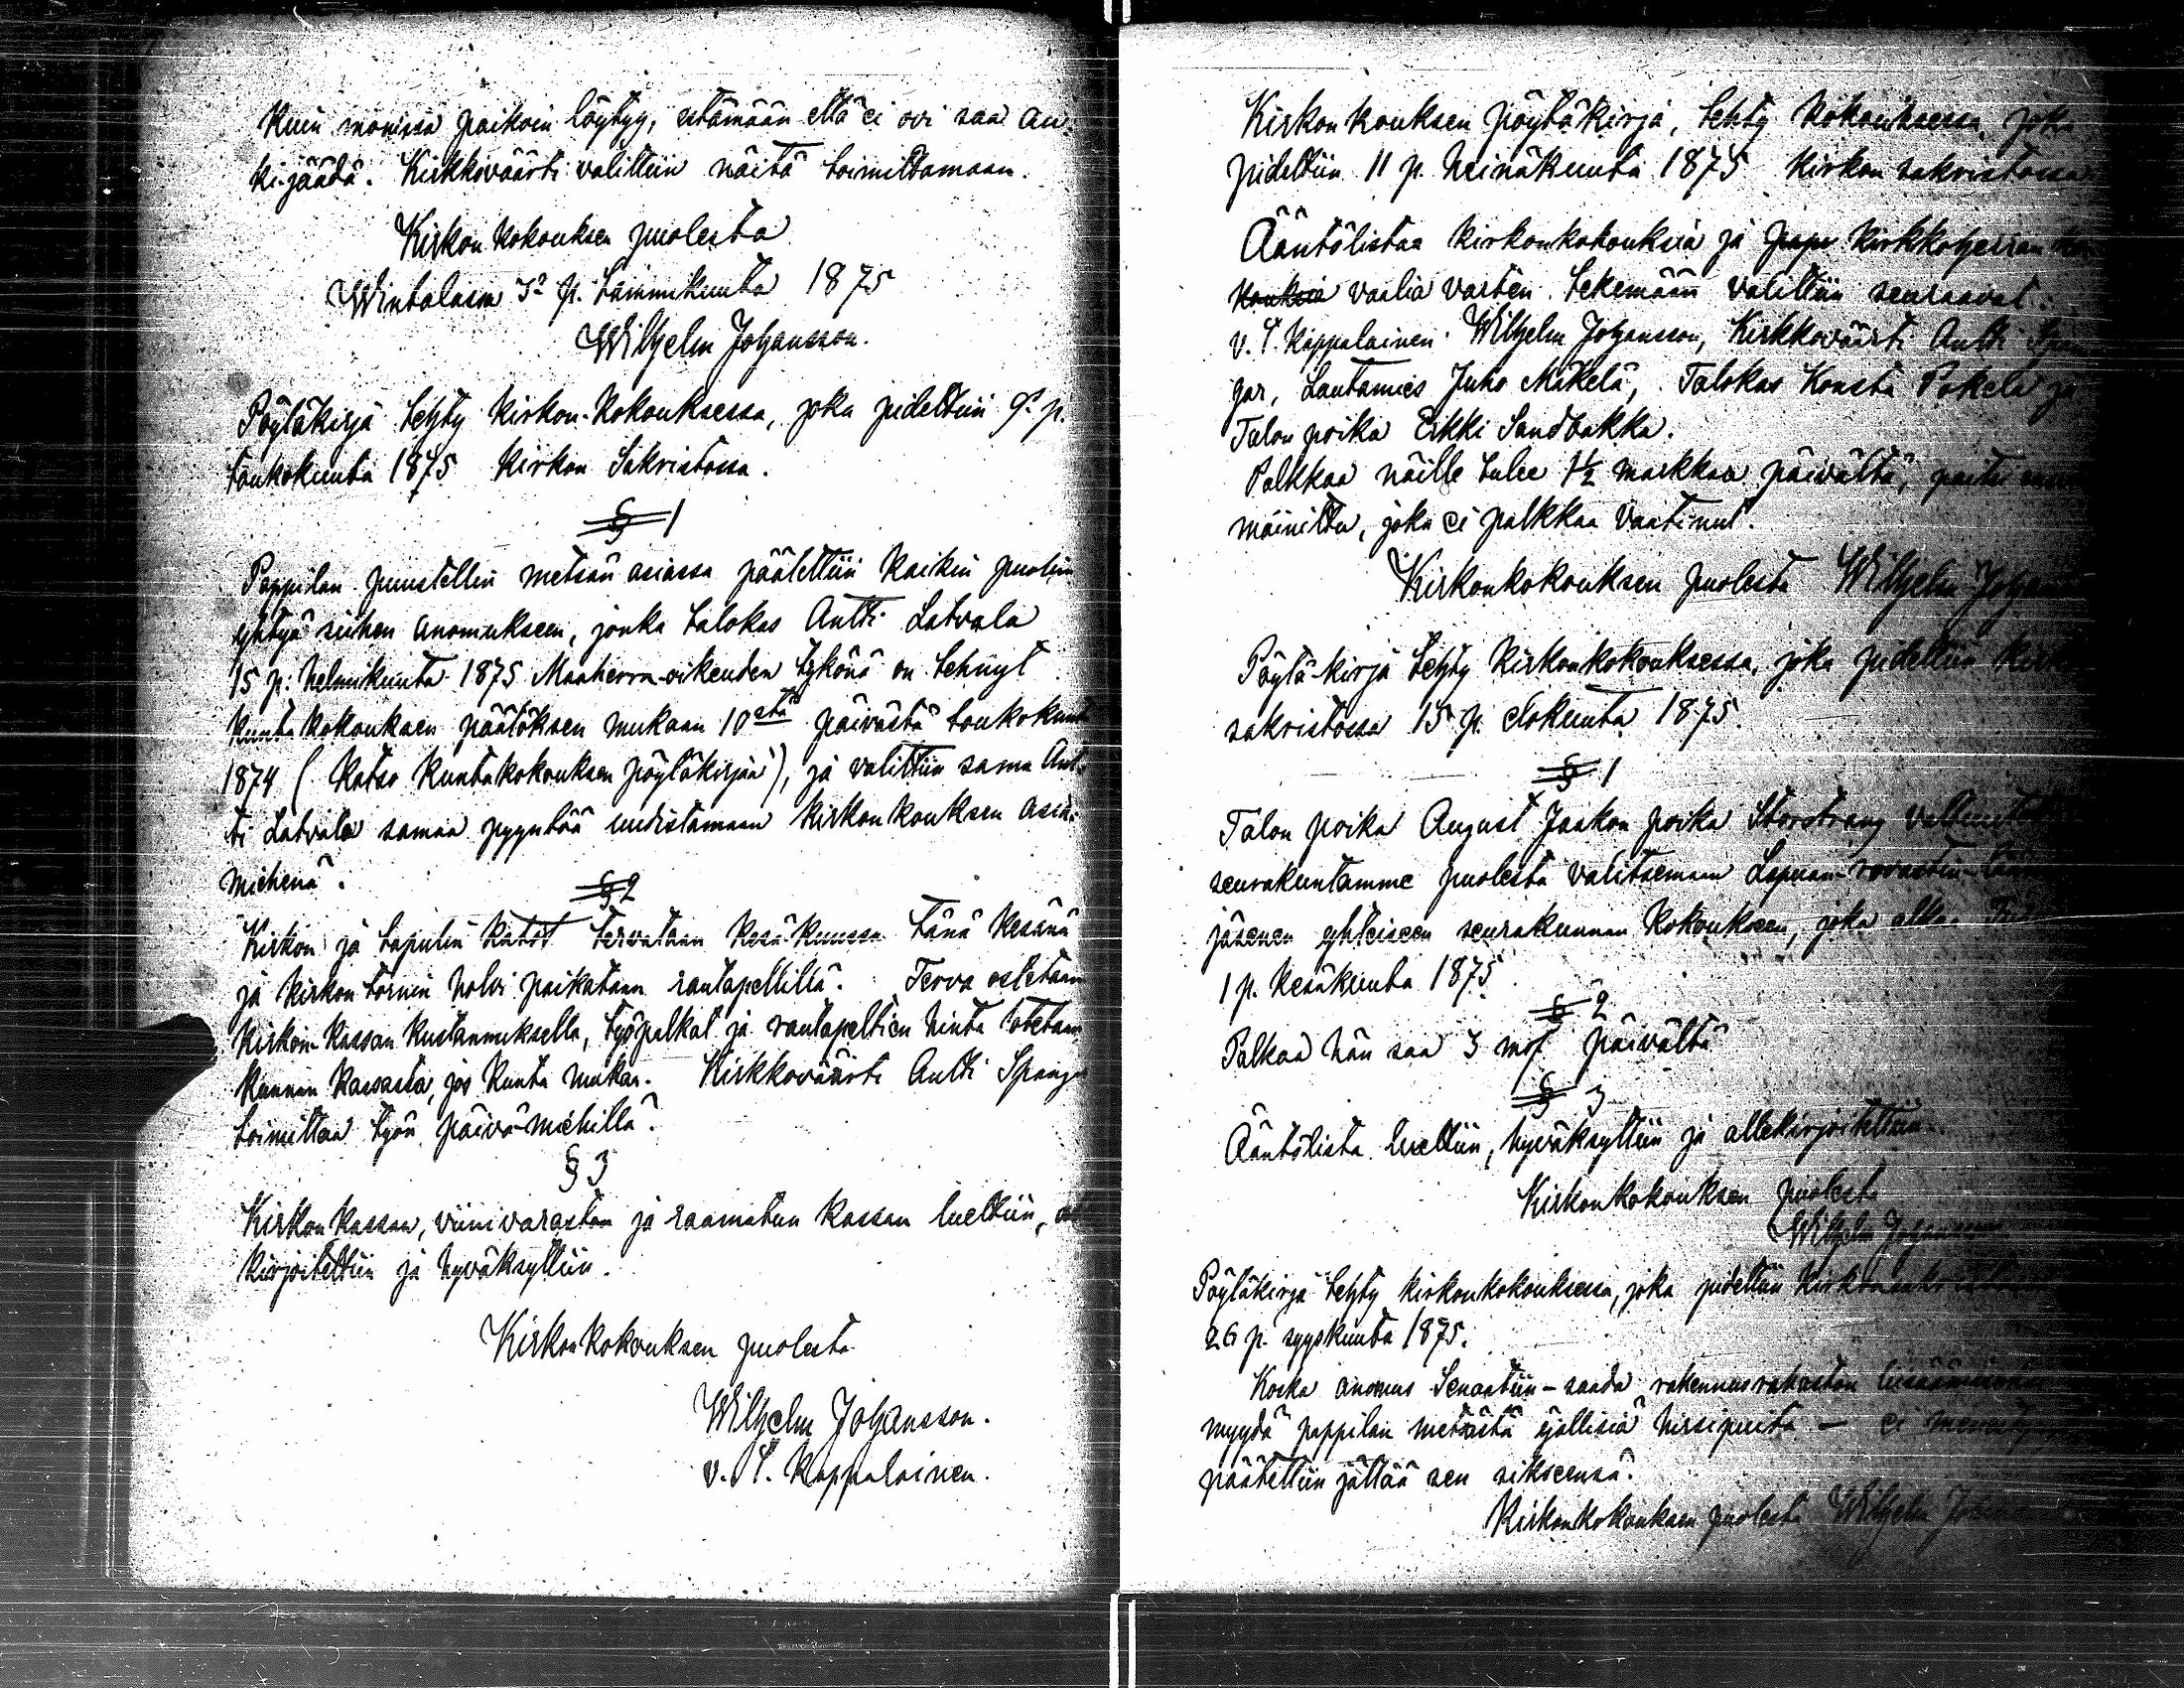 kuin monissa paikoin löytyy, estämään että ei ovi saa au-
ki jäädä. Kirkkoväärti valittiin näitä toimittamaan.
Kirkon kokouksen puolesta
Wintalassa 3 p. tammikuuta 1875
Wilhelm Johansson.
Pöytäkirja tehty kirkon-kokouksessa, joka pidettiin 9 p.
toukokuuta 1875 kirkon Sakristossa.
§ 1
Pappilan puustellin metsän asiassa päätettiin kaikin puolin
yhtyä siihen anomukseen, jonka talokas Antti Latvala
15 p. helmikuuta 1875 Maaherra-oikeuden tykönä on tehnyt
kuntakokouksen päätöksen mukaan 10stä päivästä toukokuuta
1874 (katso kuntakokouksen pöytäkirjaa), ja valittiin sama Ant-
ti Latvala samaa pyyntöä uudistamaan kirkonkouksen asia-
miehenä.
§ 2
Kirkon ja tapulin katot tervataan kesä-kuussa tänä kesänä
ja kirkon tornin holvi paikataan rautapellillä. Terva ostetaan
kirkon-kassan kustannuksella, työpalkat ja rautapeltien hinta otetaan
kunnan kassasta, jos kunta mukaa. Kirkkoväärti Antti Spangar
toimittaa työn päivä-miehillä.
§ 3
Kirkon kassan, viinivaraston ja raamatun kassan luettiin,
kirjoitettiin ja hyväksyttiin.
Kirkonkokouksen puolesta
Wilhelm Johansson.
v. T. Kappalainen.
Kirkonkouksen pöytäkirja, tehty kokouksessa, joka
pidettiin 11 p. heinäkuuta 1875 kirkon sakristossa
Ääntölistaa kirkonkokouksia ja papu kirkkoherran
kouksia vaalia varten tekemään valittiin seuraavat:
v. T. Kappalainen Wilhelm Johansson, Kirkkoväärti Antti Span-
gar, Lautamies Juho Mäkelä, Talokas Konsta Pokela ja
Talon poika Erkki Sandbakka.
Palkkaa näille tulee 1½ markkaa päivältä, paitsi
mainittu, joka ei palkkaa vaatinut.
Kirkonkokouksen puolesta Wilhelm Johan
Pöytä-kirja tehty kirkonkokouksessa, joka pidettiin
sakristossa 15 p. elokuuta 1875.
§ 1
Talon poika August Jaakon poika Storstrang
seurakuntamme puolesta valitsemaan Lapuan-rovastin-
jäsenen yhteiseen seurakunnan kokoukseen, joka alka.
1 p. kesäkuuta 1875.
§ 2
Palkaa hän saa 3 mrk päivältä
§ 3
Ääntölista luettiin, hyväksyttiin ja allekirjoitettiin.
Kirkonkokouksen puolesta
Wilhelm Johansson
Pöytäkirja tehty kirkonkokouksessa, joka pidettiin
26 p. syyskuuta 1875.
Koska anomus Senaatiin – saada rakennusrahaston
myydä pappilan metsästä hirsipuita – ei
päätettiin jättää sen siksensä.
Kirkonkokouksen puolesta Wilhelm